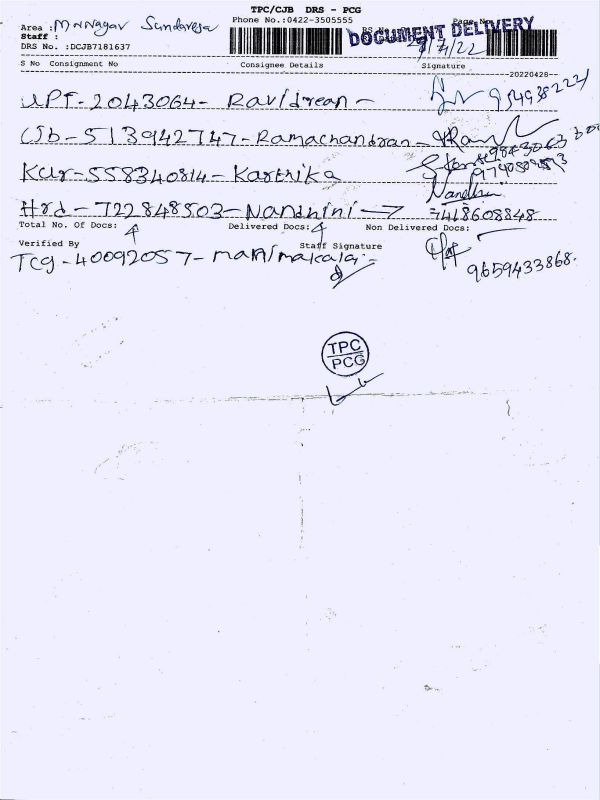 TPC/CJB DRS - PCG
Phone No.:0422-3505555
Area :
Staff :
DOCUMENT DELIVERY
DRS No. :DCJB7181637
S No Consignment No Consignee Details Signature
20220428
UPT-2043064-
CJb-513942747-Ramachandran-
Kur-558340814-Karthika
Hrd-722848503-Nandhini
Nandhini
7418608848
Total No. Of Docs: 4 Delivered Docs: 4 Non Delivered Docs:
Verified By Staff Signature
Tcg-40092057-
9659433868.
TPC
PCG